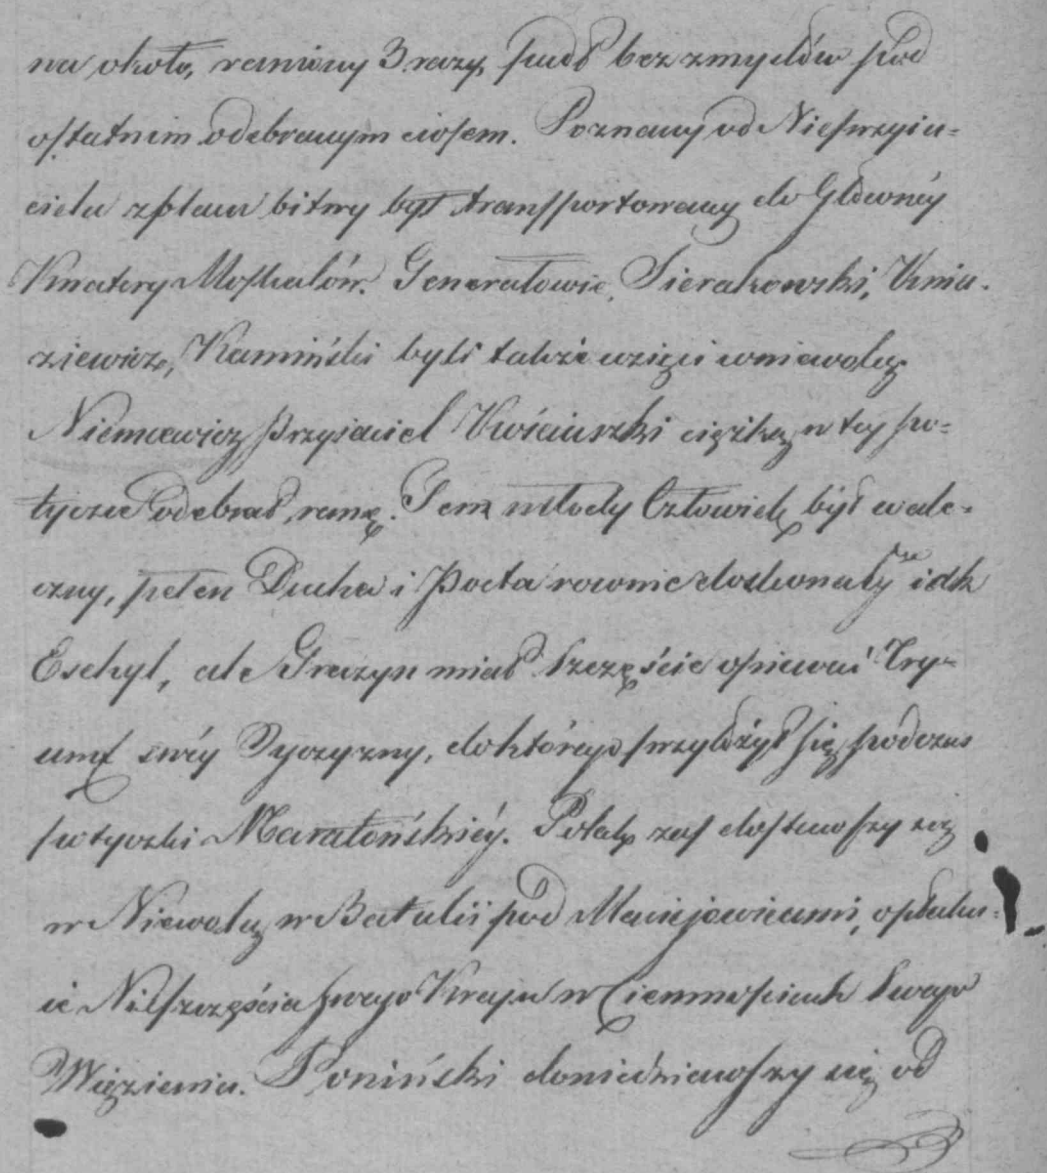 na około, raniony 3 razy, padł bez zmysłów pod
ostatnim odebranym ciosem. Poznany od Nieprzyia-
ciela z placu bitwy był transportowany do Głównéy
Kwatery Moskalów. Generałowie, Sierakowski, Knia-
ziewicz, Kamiński byli także wzięci w niewolą.
Niemcewicz przyjaciel Kościuszki ciężką w tey po-
tyczce odebrał ranę. Ten młody Człowiek był wale-
czny, pełen Ducha i Poeta rownie doskonały iak
Eschyl, ale Greczyn miał szczęście opiewać Try-
umf swéy Oyczyzny, do którego przyłożył się podczas
potyczki Maratońskiéy. Polak zaś dostawszy się
w Niewolą w Batalii pod Maciejowicami, opłaku-
ie Nieszczęścia swego Kraju w Ciemnościach swego
Więzienia. Poniński dowiedziawszy się od